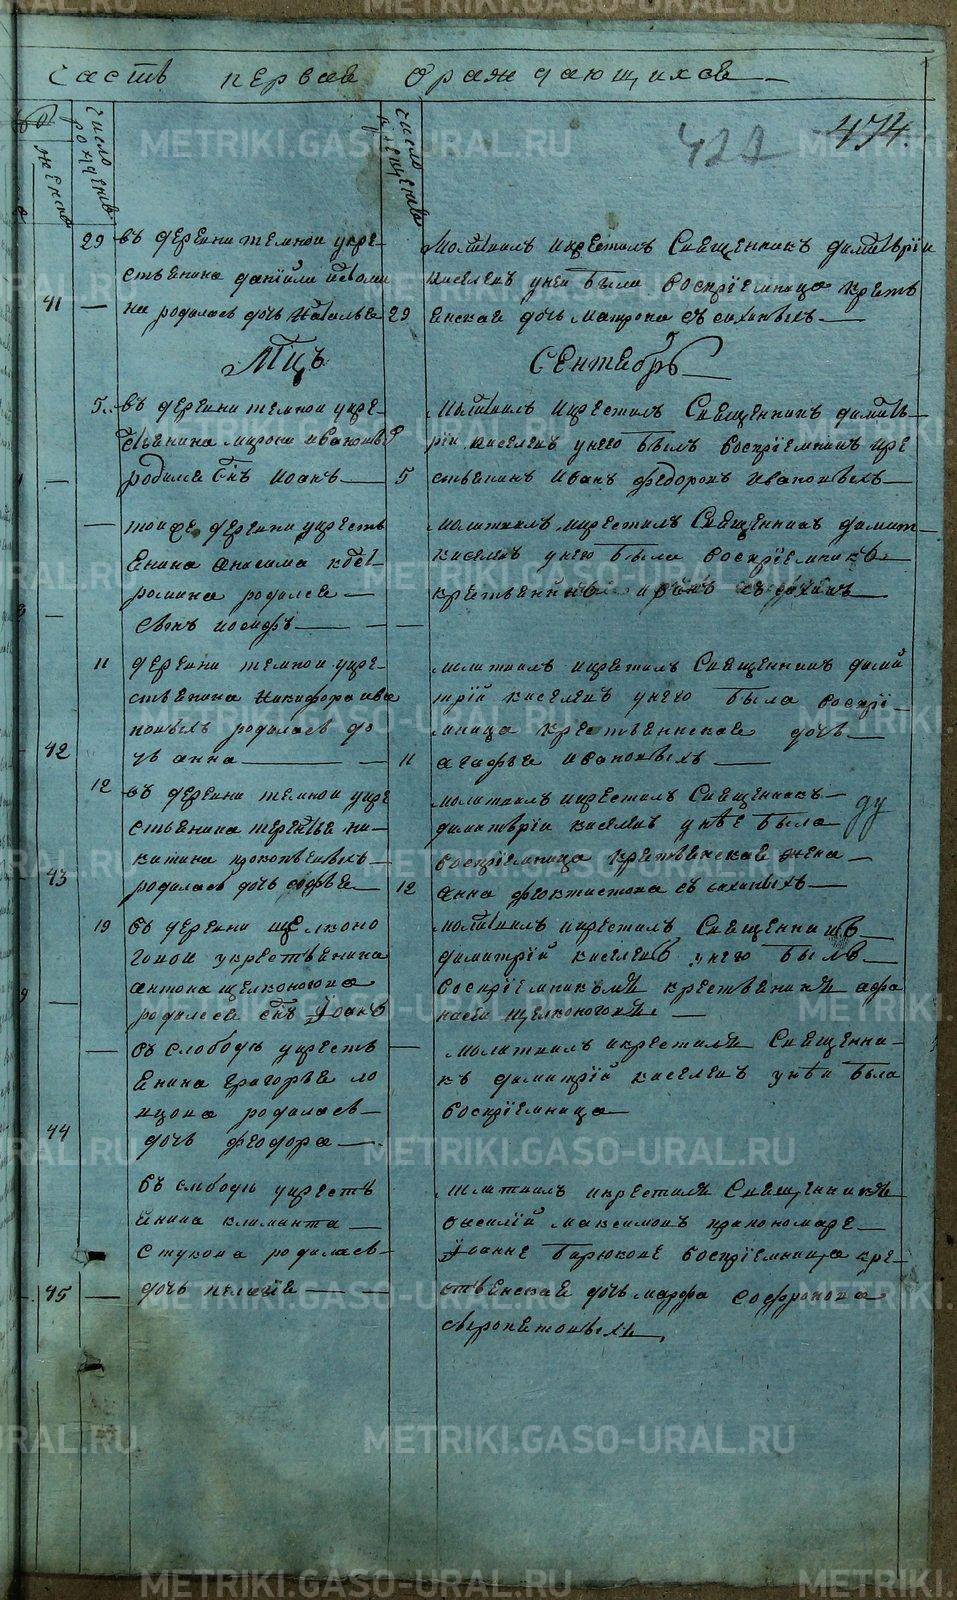 часть первая ораждающихся
422
474.
женска
число рождения
число крещения
29 въ деревни темнои укре-
стьянина данiйли
41 — на родилась дочь Наталья 29
Молитвилъ икрестилъ Священникъ димитрiи
киселевъ унеи была Воспрiемница крест
янская дочь матрона
Мцъ Сентябрь
5 въ деревни темнои укре-
стьянина мирона ивановыхъ
родился снъ иоанъ — 5
молитвилъ икрестилъ Священникъ димит-
рiи киселевъ унего былъ воспрiемникъ кре
стьянинъ иванъ федоровъ ивановыхъ
— тоиже деревни укресть
янина анисима
родился —
сынъ иосифъ — —
молитвилъ икрестилъ Священникъ димит-
киселевъ унего была воспрiемникъ
крестьянинъ иванъ
11 деревни темнои укре-
стьянина Никифора ива
новыхъ родилась до
42 чь анна — 11
молитвилъ икрестилъ Священникъ дими
трiй киселевъ унего была воспрiе-
мница крестьянская дочь
агафья ивановыхъ
12 въ деревни темнои укре
стьянина терентье ни-
китина прокопьевыхъ
43 родилась дочь софья — 12
молитвилъ икрестилъ Священникъ
димитрiи киселевъ унее была
воспрiемница крестьянская жена
анна феоктистова
ду
19 въ деревни щелконо
гонои укрестьянина
антона щелконогона
родился снъ Iоанъ
молитвилъ икрестилъ Священникъ
димитрiй киселевъ унего былъ
воспрiемникомъ крестьянинъ афа
насеи щелконогонъ
— въ слободы укресть —
янина григорье ло
нцона родилась
44 дочь феодора —
молитвилъ икрестилъ Священни-
къ димитрiй киселевъ унеи была
воспрiемница
въ слободы укресть
янина климанта —
стукона родилась
45 — дочь пелагiя — —
молитвилъ икрестилъ Священникъ
василiй максимовъ приноморе
Iоанне бирюкове воспрiемница кре-
стьянская дочь марфа софронона